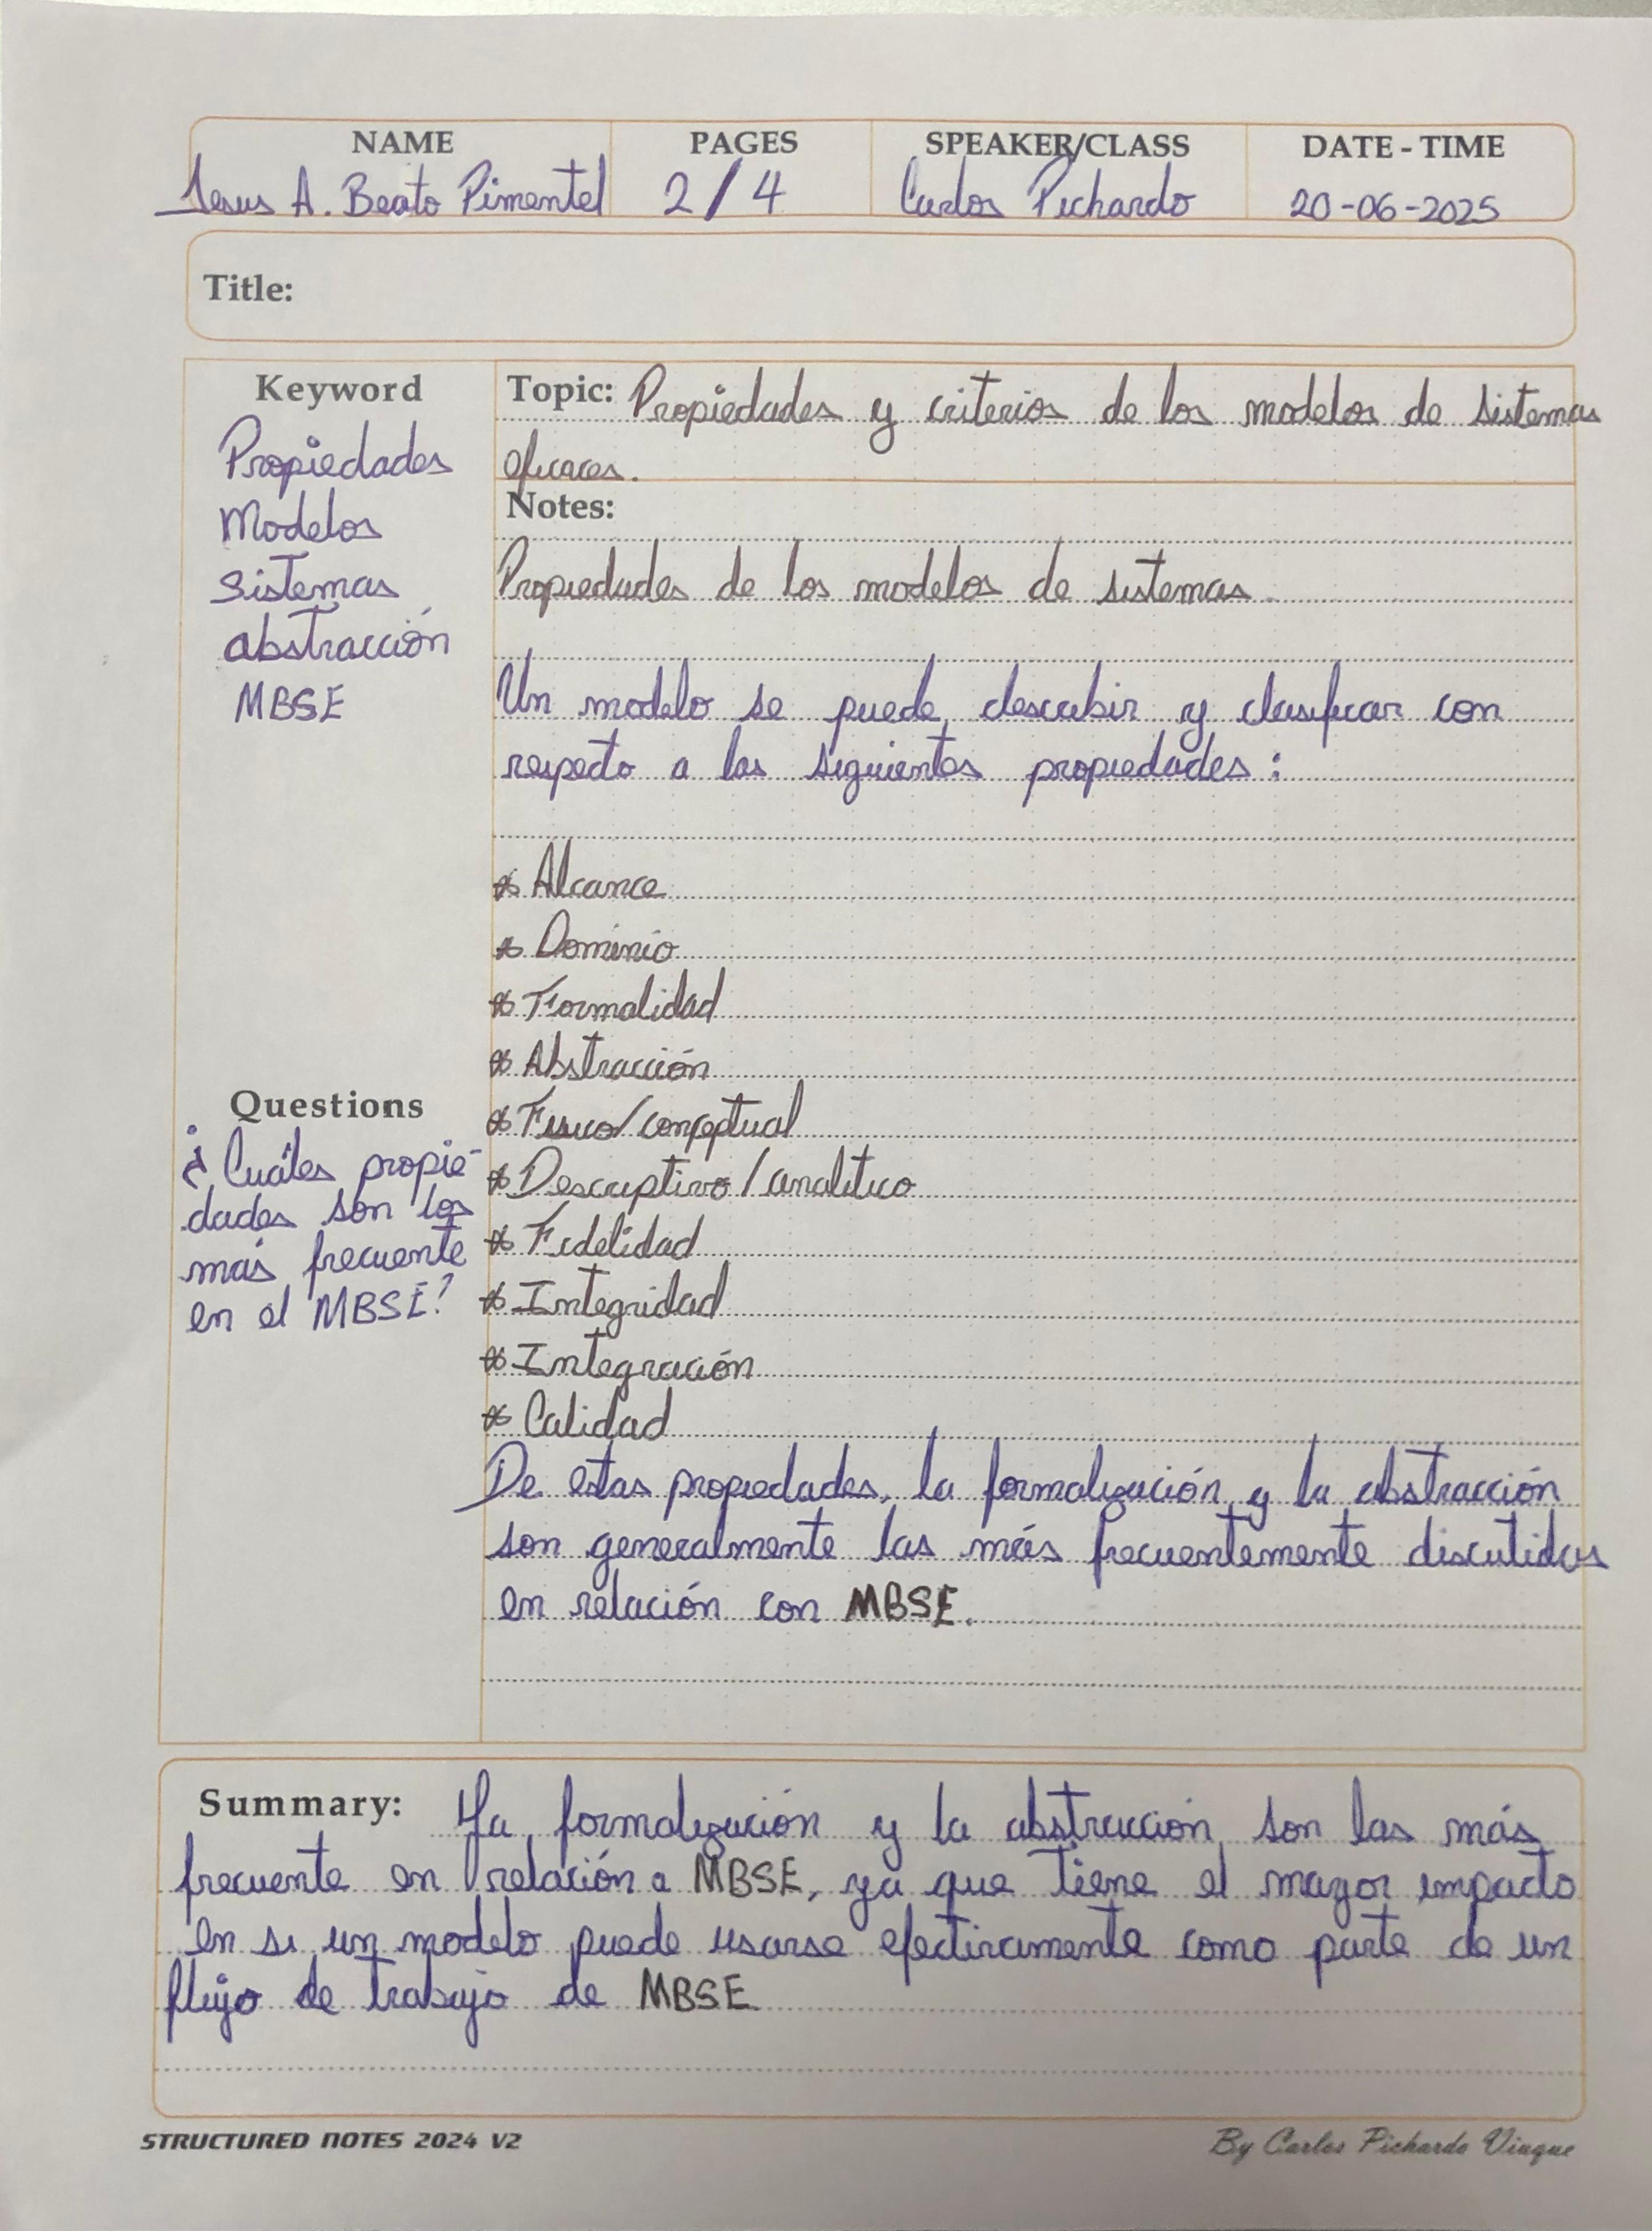 NAME PAGES SPEAKER/CLASS DATE - TIME
Jesus A. Beato Pimentel 2/4 Carlos Pichardo 20-06-2025
Title:
Keyword
Propiedades
Modelos
Sistemas
abstracción
MBSE
Questions
¿Cuáles propie-
dades son los
más frecuente
en el MBSE?
Topic: Propiedades y criterios de los modelos de sistemas
eficaces.
Notes:
Propiedades de los modelos de sistemas.
Un modelo se puede describir y clasificar con
respecto a las siguientes propiedades:
* Alcance
* Dominio
* Formalidad
* Abstracción
* Fisico/conceptual
* Descriptivo/analitico
* Fidelidad
* Integridad
* Integración
* Calidad
De estas propiedades, la formalización y la abstracción
son generalmente las más frecuentemente discutidas
en relación con MBSE.
Summary: La formalización y la abstracción son las más
frecuente en relación a MBSE, ya que tiene el mayor impacto
en si un modelo puede usarse efectivamente como parte de un
flujo de trabajo de MBSE
STRUCTURED NOTES 2024 V2
By Carlos Pichardo Viuque